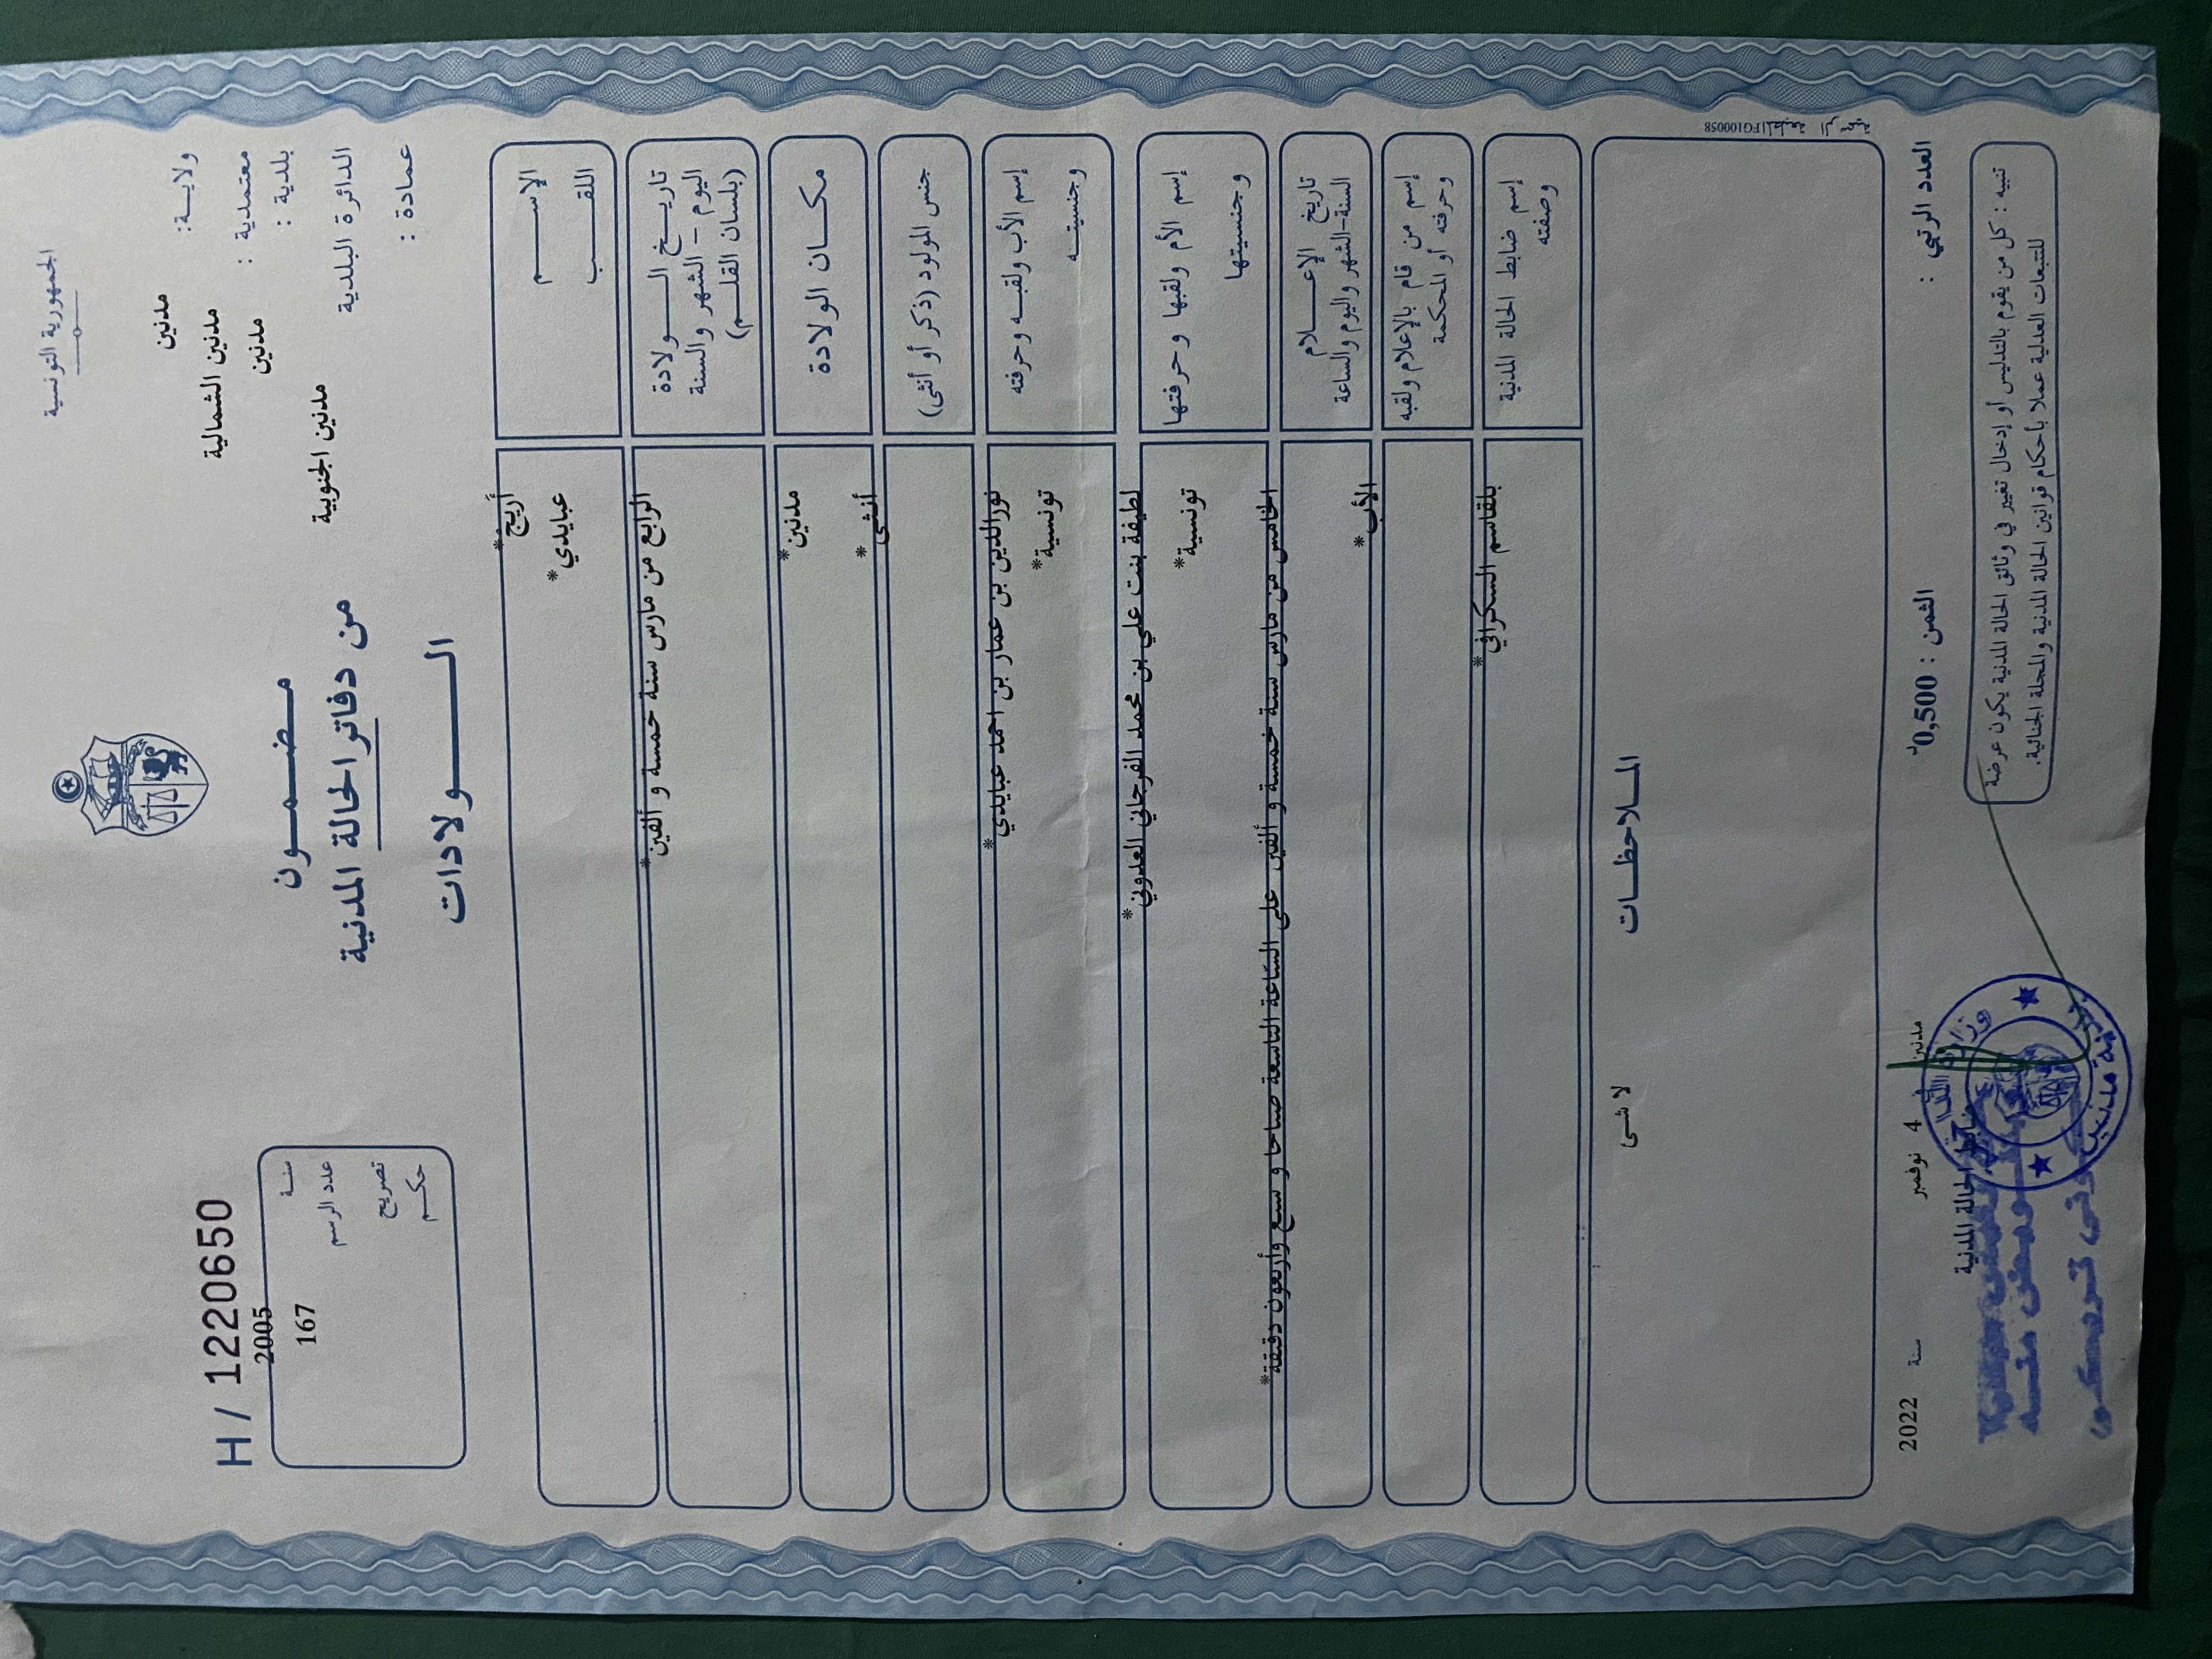 الجمهورية التونسية
H / 12220650
ولاية: مدنين
معتمدية : مدنين الشمالية
بلدية : مدنين
الدائرة البلدية مدنين الجنوبية
عمادة :
مضمون
من دفاتر الحالة المدنية
الولادات
سنة 2005
عدد الرسم 167
تصريح
حكم
الإسم أريج*
اللقب عبايدي*
تاريخ الولادة
اليوم - الشهر والسنة
(بلسان القلم)
الرابع من مارس سنة خمسة و ألفين*
مكان الولادة مدنين*
جنس المولود (ذكر أو أنثى) أنثى*
إسم الأب ولقبه وحرفته نورالدين بن عمار بن احمد عبايدي*
وجنسيته تونسية*
إسم الأم ولقبها وحرفتها لطيفة بنت علي بن محمد الفرجاني العدوني*
وجنسيتها تونسية*
تاريخ الإعلام
السنة-الشهر واليوم والساعة
الخامس من مارس سنة خمسة و ألفين على السّاعة التاسعة صباحا و سبع وأربعون دقيقة*
إسم من قام بالإعلام ولقبه
وحرفته أو المحكمة
الأب*
إسم ضابط الحالة المدنية
وصفته
بلقاسم السكرافي*
الملاحظات
لا شئ
المطبعة الرسمية FG100058
العدد الرتبي :
الثمن : 0,500د
مدنين في 4 نوفمبر سنة 2022
ضابط الحالة المدنية
تنبيه : كل من يقوم بالتدليس أو إدخال تغيير في وثائق الحالة المدنية يكون عرضة
للتتبعات العدلية عملا بأحكام قوانين الحالة المدنية والمجلة الجنائية.